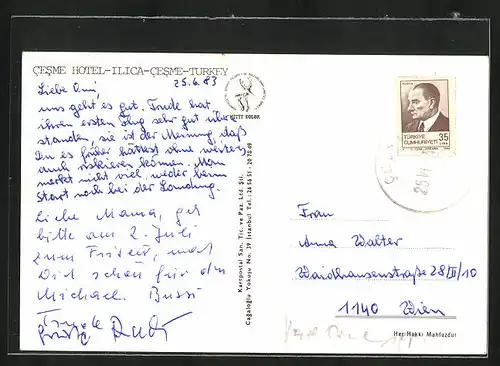 ÇEŞME HOTEL-ILICA-ÇEŞME-TURKEY
25.6.83
Liebe Omi,
uns geht es gut. Trude hat
ihren ersten Flug sehr gut über-
standen, sie ist der Meinung, daß
Du es früher hättest ohne weiters
auch riskieren können. Man
merkt nicht viel, weder beim
Start noch bei der Landung.
Liebe Mama, geh
bitte am 2. Juli
zum Friseur, und
Dich schön für den
Michael. Bussi
Trude
HITIT COLOR
Kartpostal San. Tic. ve Paz. Ltd. Şti.
Cağaloğlu Yokuşu No. 39 İstanbul Tel.: 28 56 51 - 20 70 49
TÜRKİYE
CUMHURİYETİ
35
LİRA
Frau
Anna Walter
Waidhausenstraße 28/II/10
1140 Wien
Her Hakkı Mahfuzdur